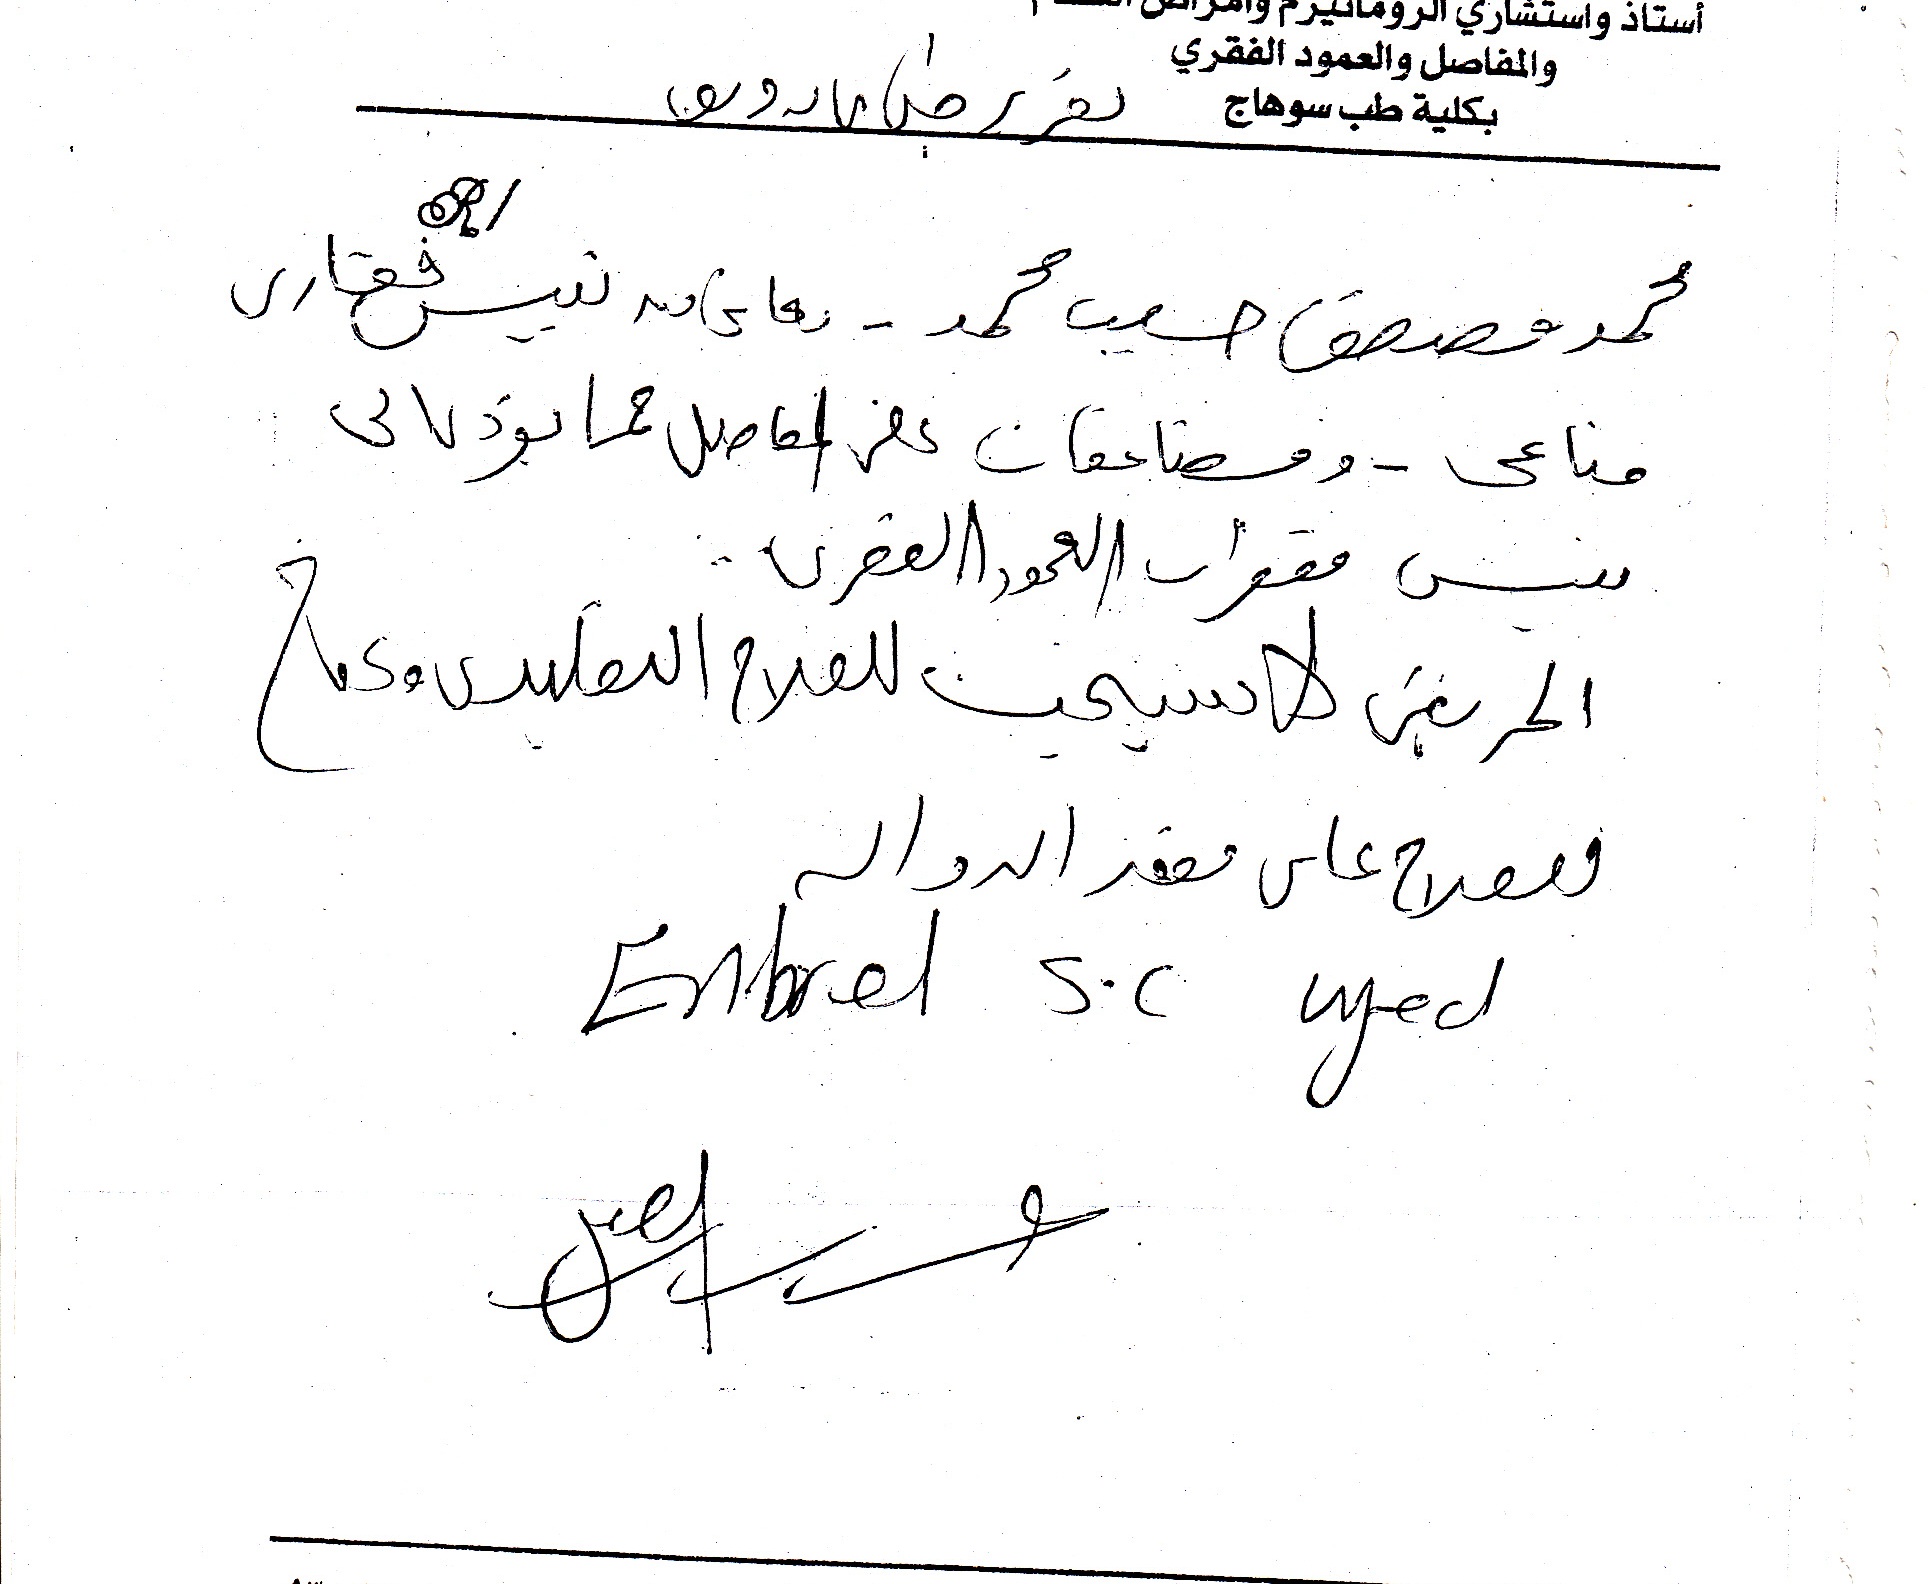 أستاذ واستشاري الروماتيزم وأمراض
والمفاصل والعمود الفقري
بكلية طب سوهاج
تقرير طبي
محمد مصطفى حسيب محمد - يعانى من تيبس فقارى
مناعى - ومضاعفات على المفاصل مما يؤدى الى
تيبس فقرات العمود الفقرى
المريض لا يستجيب للعلاج التقليدى ويحتاج
للعلاج على نفقة الدولة
Enbrel S.C